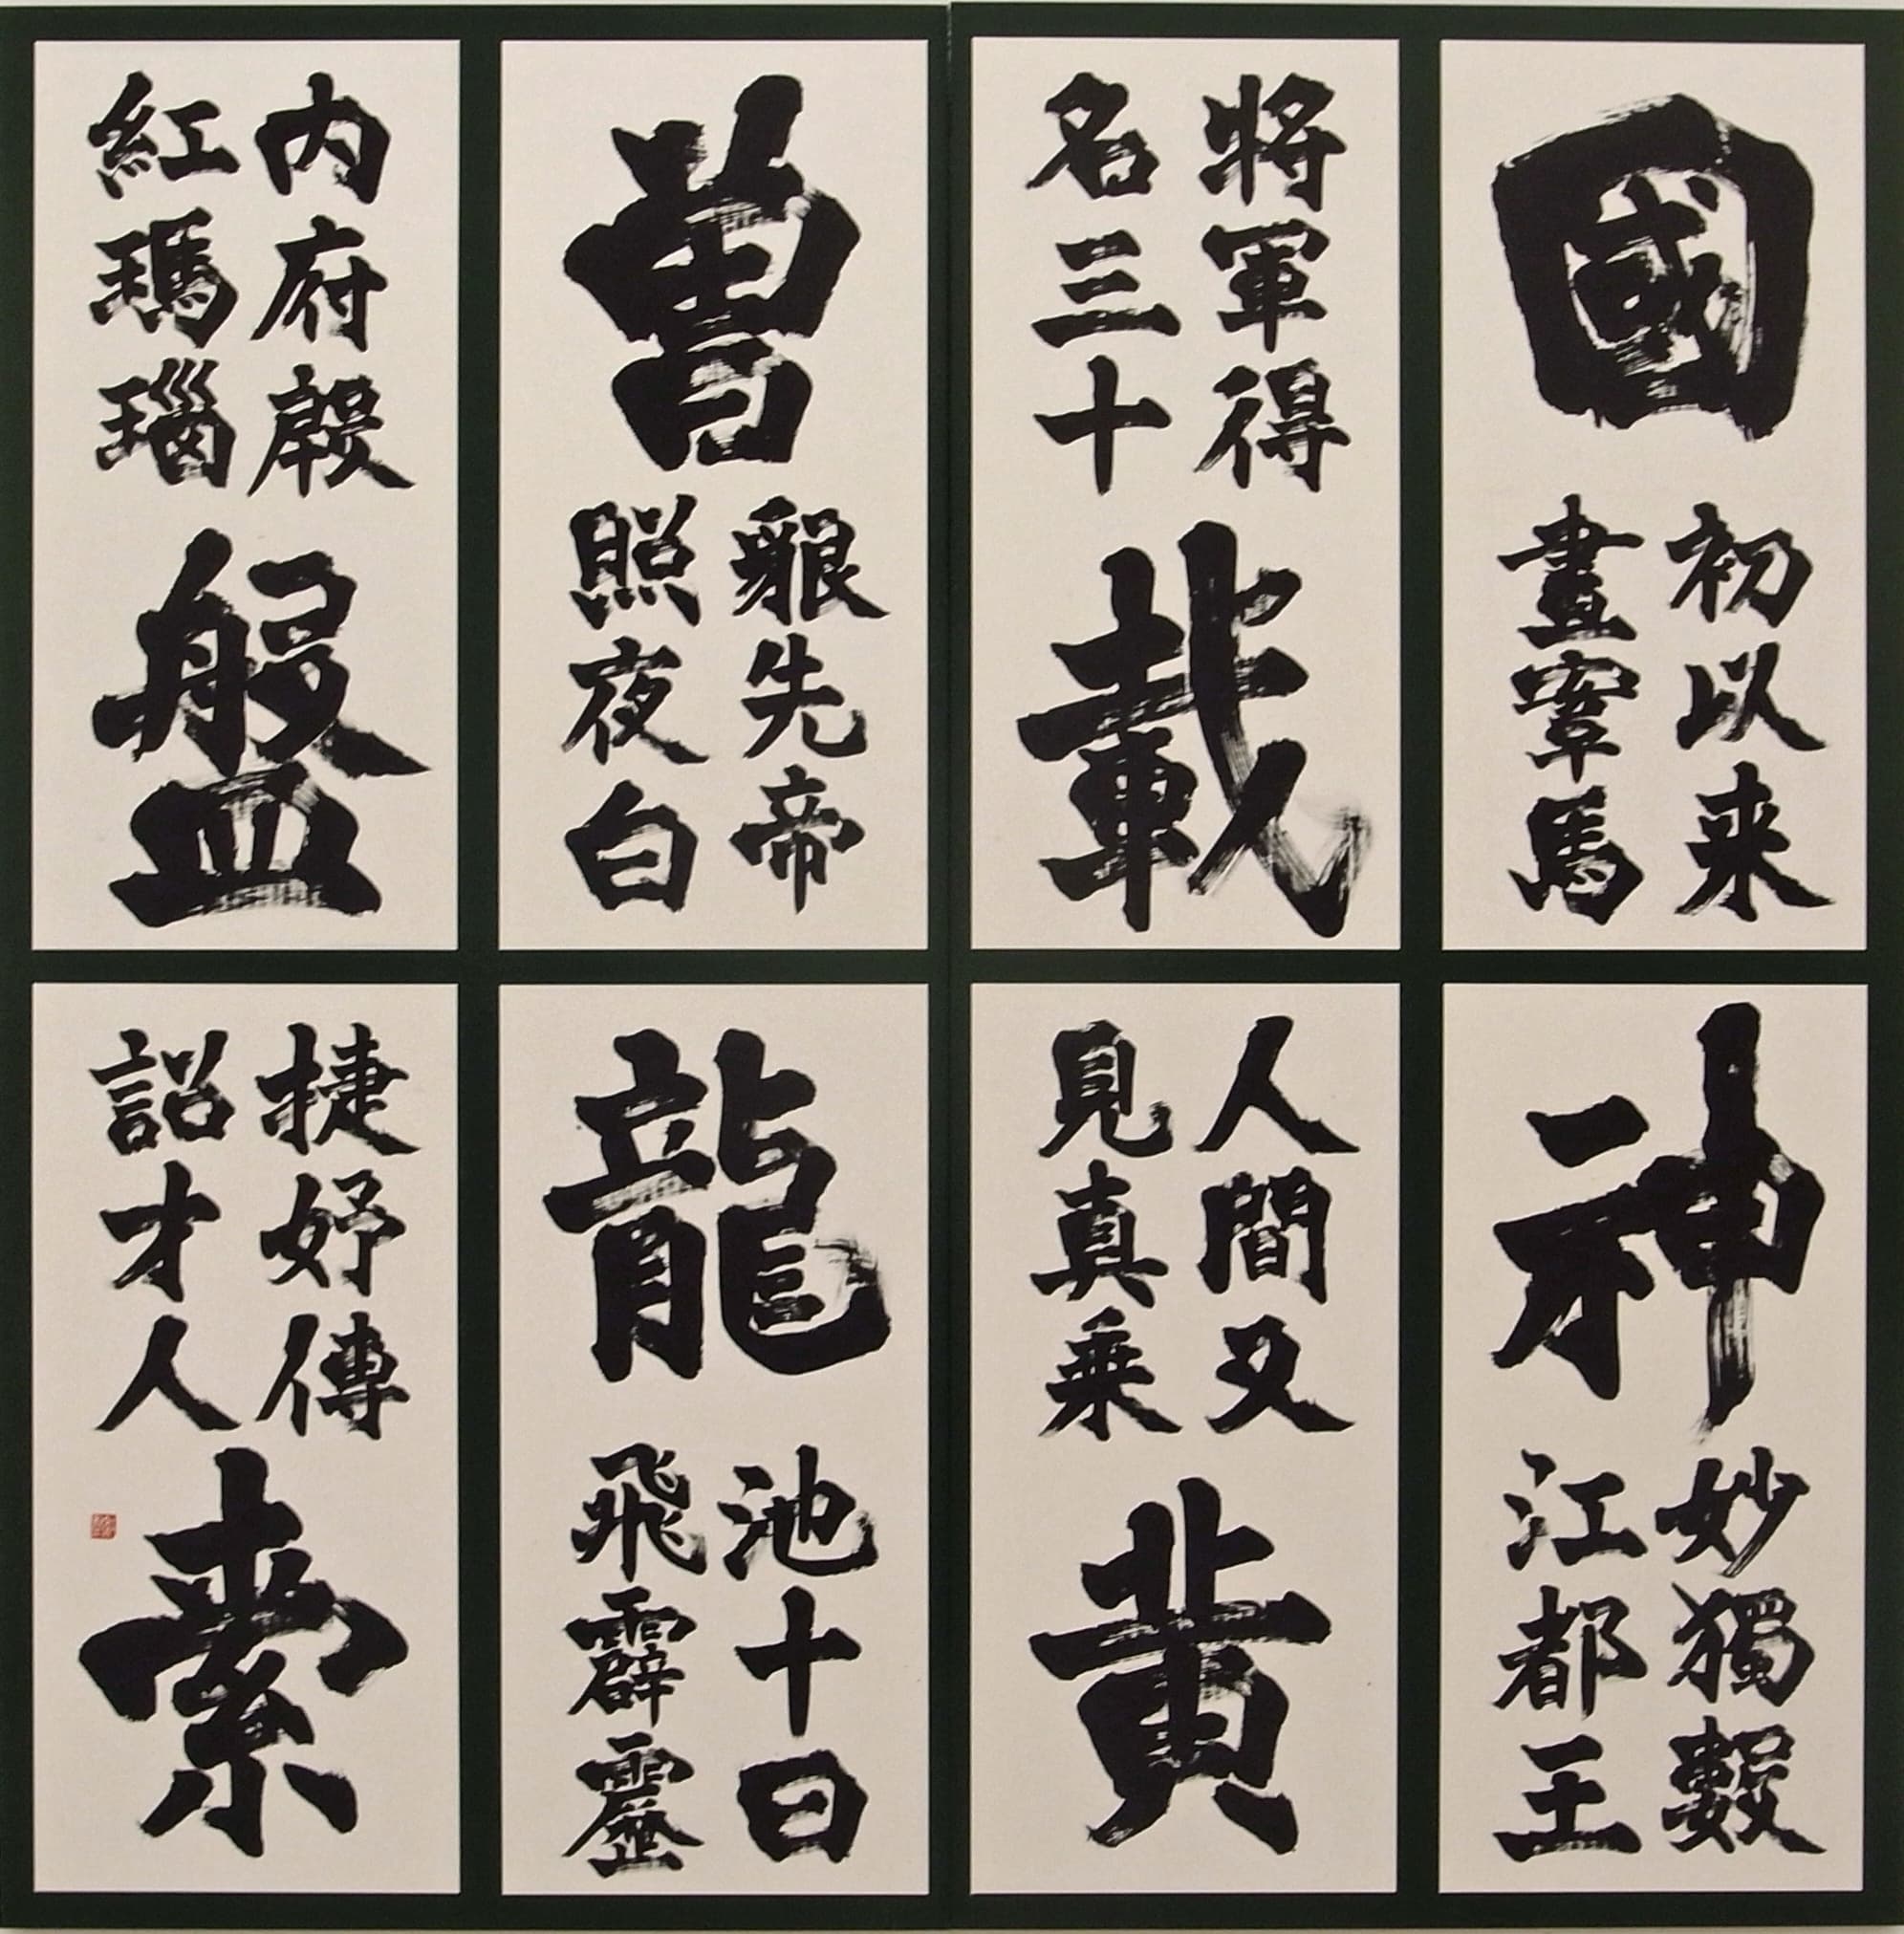 國
初以来
畫鞌馬
神
妙獨數
江都王
將軍得
名三十
載
人間又
見真乗
黄
曽
貌先帝
照夜白
龍
池十日
飛霹靂
内府殷
紅瑪瑙
盤
捷妤傳
詔才人
索